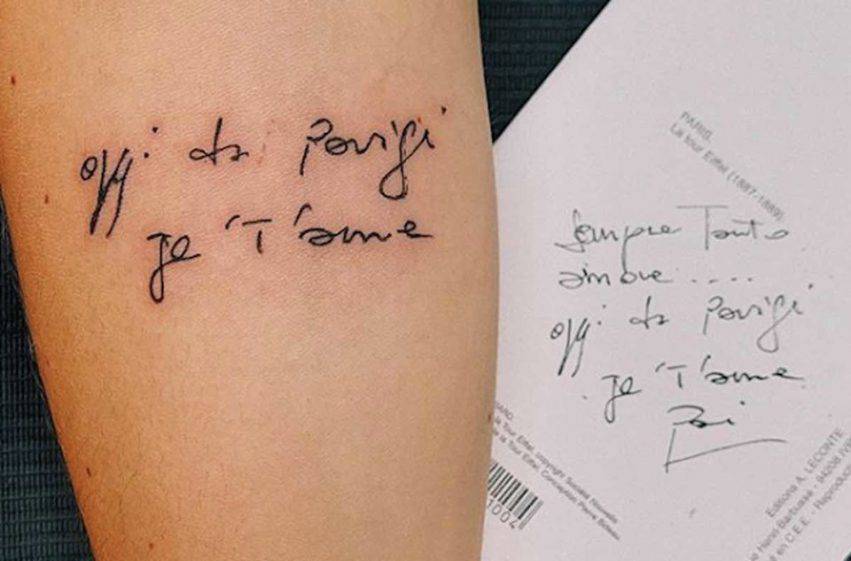 oggi da Parigi
je 'T 'aime
PARIS.
La tour Eiffel (1887-1889)
Sempre Tanto
amore ....
oggi da Parigi
je 'T 'aime
la Tour Eiffel, copyright Société Nouvelle
de la Tour Eiffel. Conception Pierre Bideau.
1004
Editions A. LECONTE
Henri-Barbusse - 94200
en C.E.E. -